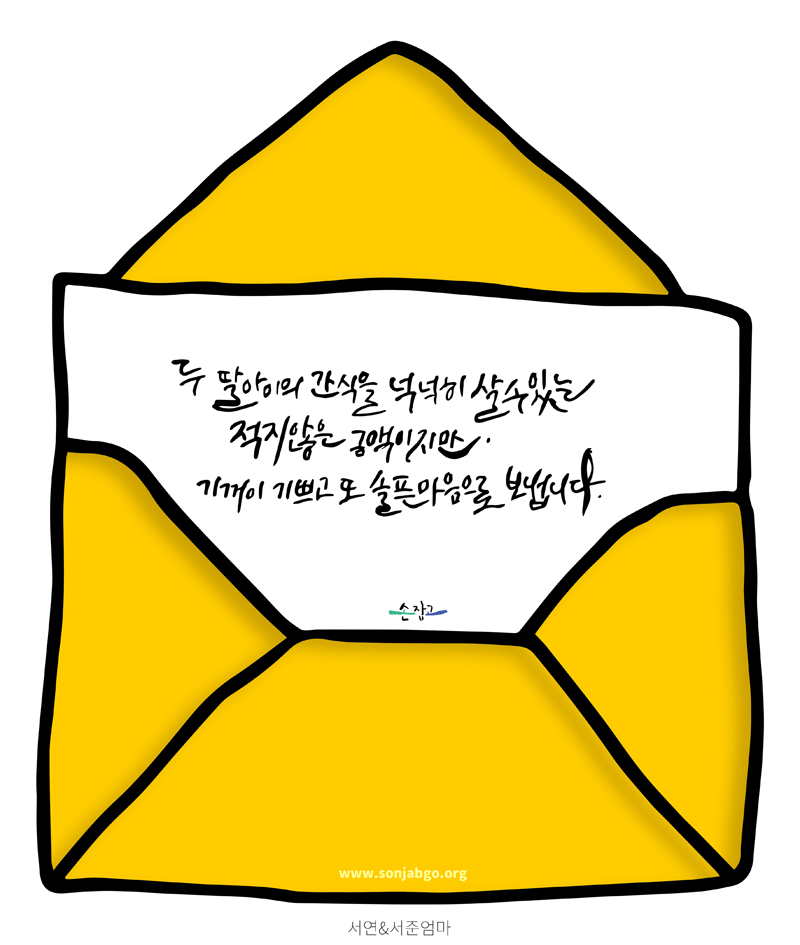 두 딸아이의 간식을 넉넉히 살 수 있는
적지않은 금액이지만.
기꺼이 기쁘고 또 슬픈마음으로 보냅니다.
손잡고
www.sonjabgo.org
서연&서준엄마